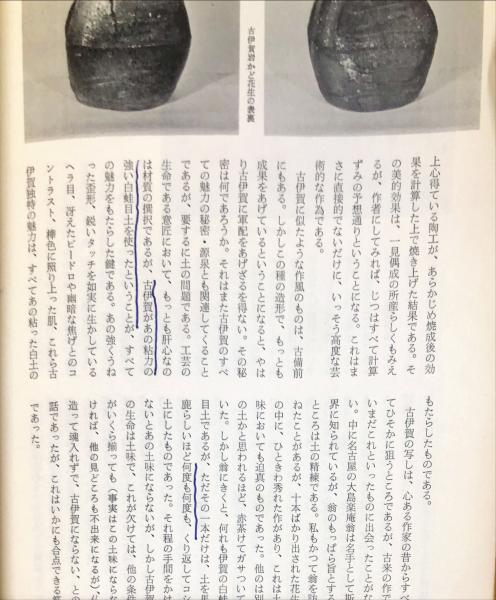 古伊賀岩かど花生の表裏
上心得ている陶工が、あらかじめ焼成後の効
果を計算した上で焼き上げた結果である。そ
の美的効果は、一見偶成の所産らしくもみえ
るが、作者にしてみれば、じつはすべて計算
ずみの予想通りということになる。これはま
さに直接的でないだけに、いっそう高度な芸
術的な作為である。
古伊賀に似たような作風のものは、古備前
にもある。しかしこの種の造形で、もっとも
成果をあげているということになると、やは
り古伊賀に軍配をあげざるを得ない。その秘
密は何であろうか。それはまた古伊賀のすべ
ての魅力の秘密・源泉とも関連してくること
であるが、要するに土の問題である。工芸の
生命である意匠において、もっとも肝心なの
は材質の撰択であるが、古伊賀があの粘力の
強い白蛙目土を使ったということが、すべて
の魅力をもたらした鍵である。あの強くうね
った歪形、鋭いタッチを如実に生かしている
ヘラ目、冴えたビードロや幽暗な焦げとのコ
ントラスト、樺色に照り上った肌、これら古
伊賀独特の魅力は、すべてあの粘った白土の
もたらしたものである。
古伊賀の写しは、心ある作家の昔からすべ
てひそかに狙うところであるが、古来の作で
いまだこれといったものに出会ったことがな
い。中に名古屋の大島楽庵翁は名手として斯
界に知られているが、翁のもっぱら旨とする
ところは土の精練である。私もかつて翁を訪
ねたことがあるが、十本ばかり出された花生
の中に、ひときわ秀れた作があり、これは土
味においても迫真のものであった。他のは別
の土かと思われるほど、赤茶けてガサついて
いた。しかし翁にきくと、何れも伊賀の白蛙
目土であるが、ただその一本だけは、土を馬
鹿らしいほど何度も何度も、くり返してコシ
土にしたものであった。それ程の手間をかけ
ないとあの土味にならないが、しかし古伊賀
の生命は土味で、これが欠けては、他の条件
がいくら揃っても（事実はこの土味にならな
ければ、他の見どころも不出来になるが）仏
造って魂入れずで、古伊賀にならない、との
話であったが、これはいかにも合点できる
であった。